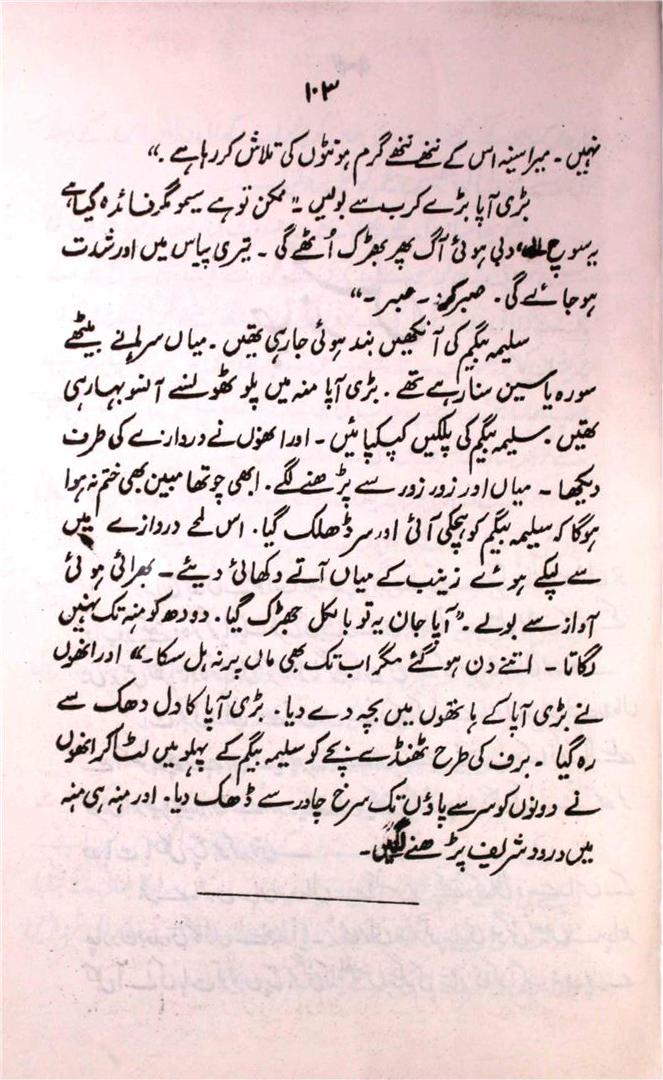 ۱۰۳
نہیں۔ میرا سینہ اس کے ننھے ننھے گرم ہونٹوں کی تلاش کر رہا ہے۔"
بڑی آپا بڑے کرب سے بولیں۔ "ممکن تو ہے سیمو مگر فائدہ کیا ہے
یہ سوچ دبی ہوئی آگ پھر بھڑک اُٹھے گی۔ تیری پیاس میں اور شدت
ہو جائے گی۔ صبر کر۔ صبر۔"
سلیمہ بیگم کی آنکھیں بند ہوئی جا رہی تھیں۔ میاں سرہانے بیٹھے
سورہ یاسین سنا رہے تھے۔ بڑی آپا منہ میں پلو ٹھونسے آنسو بہا رہی
تھیں۔ سلیمہ بیگم کی پلکیں کپکپائیں۔ اور انھوں نے دروازے کی طرف
دیکھا۔ میاں اور زور زور سے پڑھنے لگے۔ ابھی چوتھا مبین بھی ختم نہ ہوا
ہوگا کہ سلیمہ بیگم کو ہچکی آئی اور سر ڈھلک گیا۔ اس لمحے دروازے میں
سے لپکے ہوئے زینب کے میاں آتے دکھائی دیئے۔ بھرائی ہوئی
آواز سے بولے۔ "آپا جان یہ تو بالکل بھڑک گیا۔ دودھ کو منہ تک نہیں
لگاتا۔ اتنے دن ہو گئے مگر اب تک بھی ماں پر نہ ہل سکا۔" اور انھوں
نے بڑی آپا کے ہاتھوں میں بچہ دے دیا۔ بڑی آپا کا دل دھک سے
رہ گیا۔ برف کی طرح ٹھنڈے بچے کو سلیمہ بیگم کے پہلو میں لٹا کر انھوں
نے دونوں کو سر سے پاؤں تک سرخ چادر سے ڈھک دیا۔ اور منہ ہی منہ
میں درود شریف پڑھنے لگیں۔